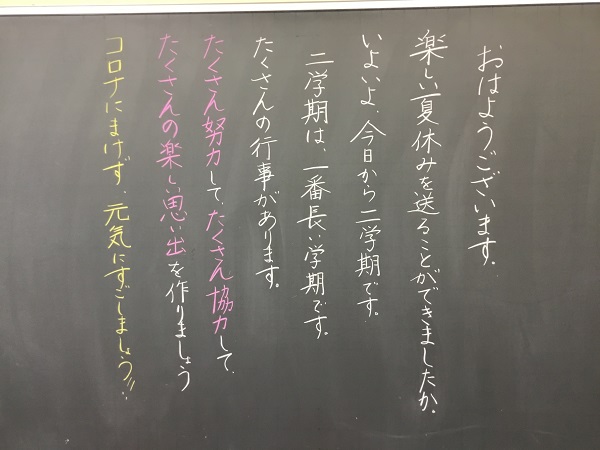 おはようございます。
楽しい夏休みを送ることができましたか。
いよいよ、今日から二学期です。
二学期は、一番長い学期です。
たくさんの行事があります。
たくさん努力して、たくさん協力して、
たくさんの楽しい思い出を作りましょう
コロナにまけず、元気にすごしましょう!!